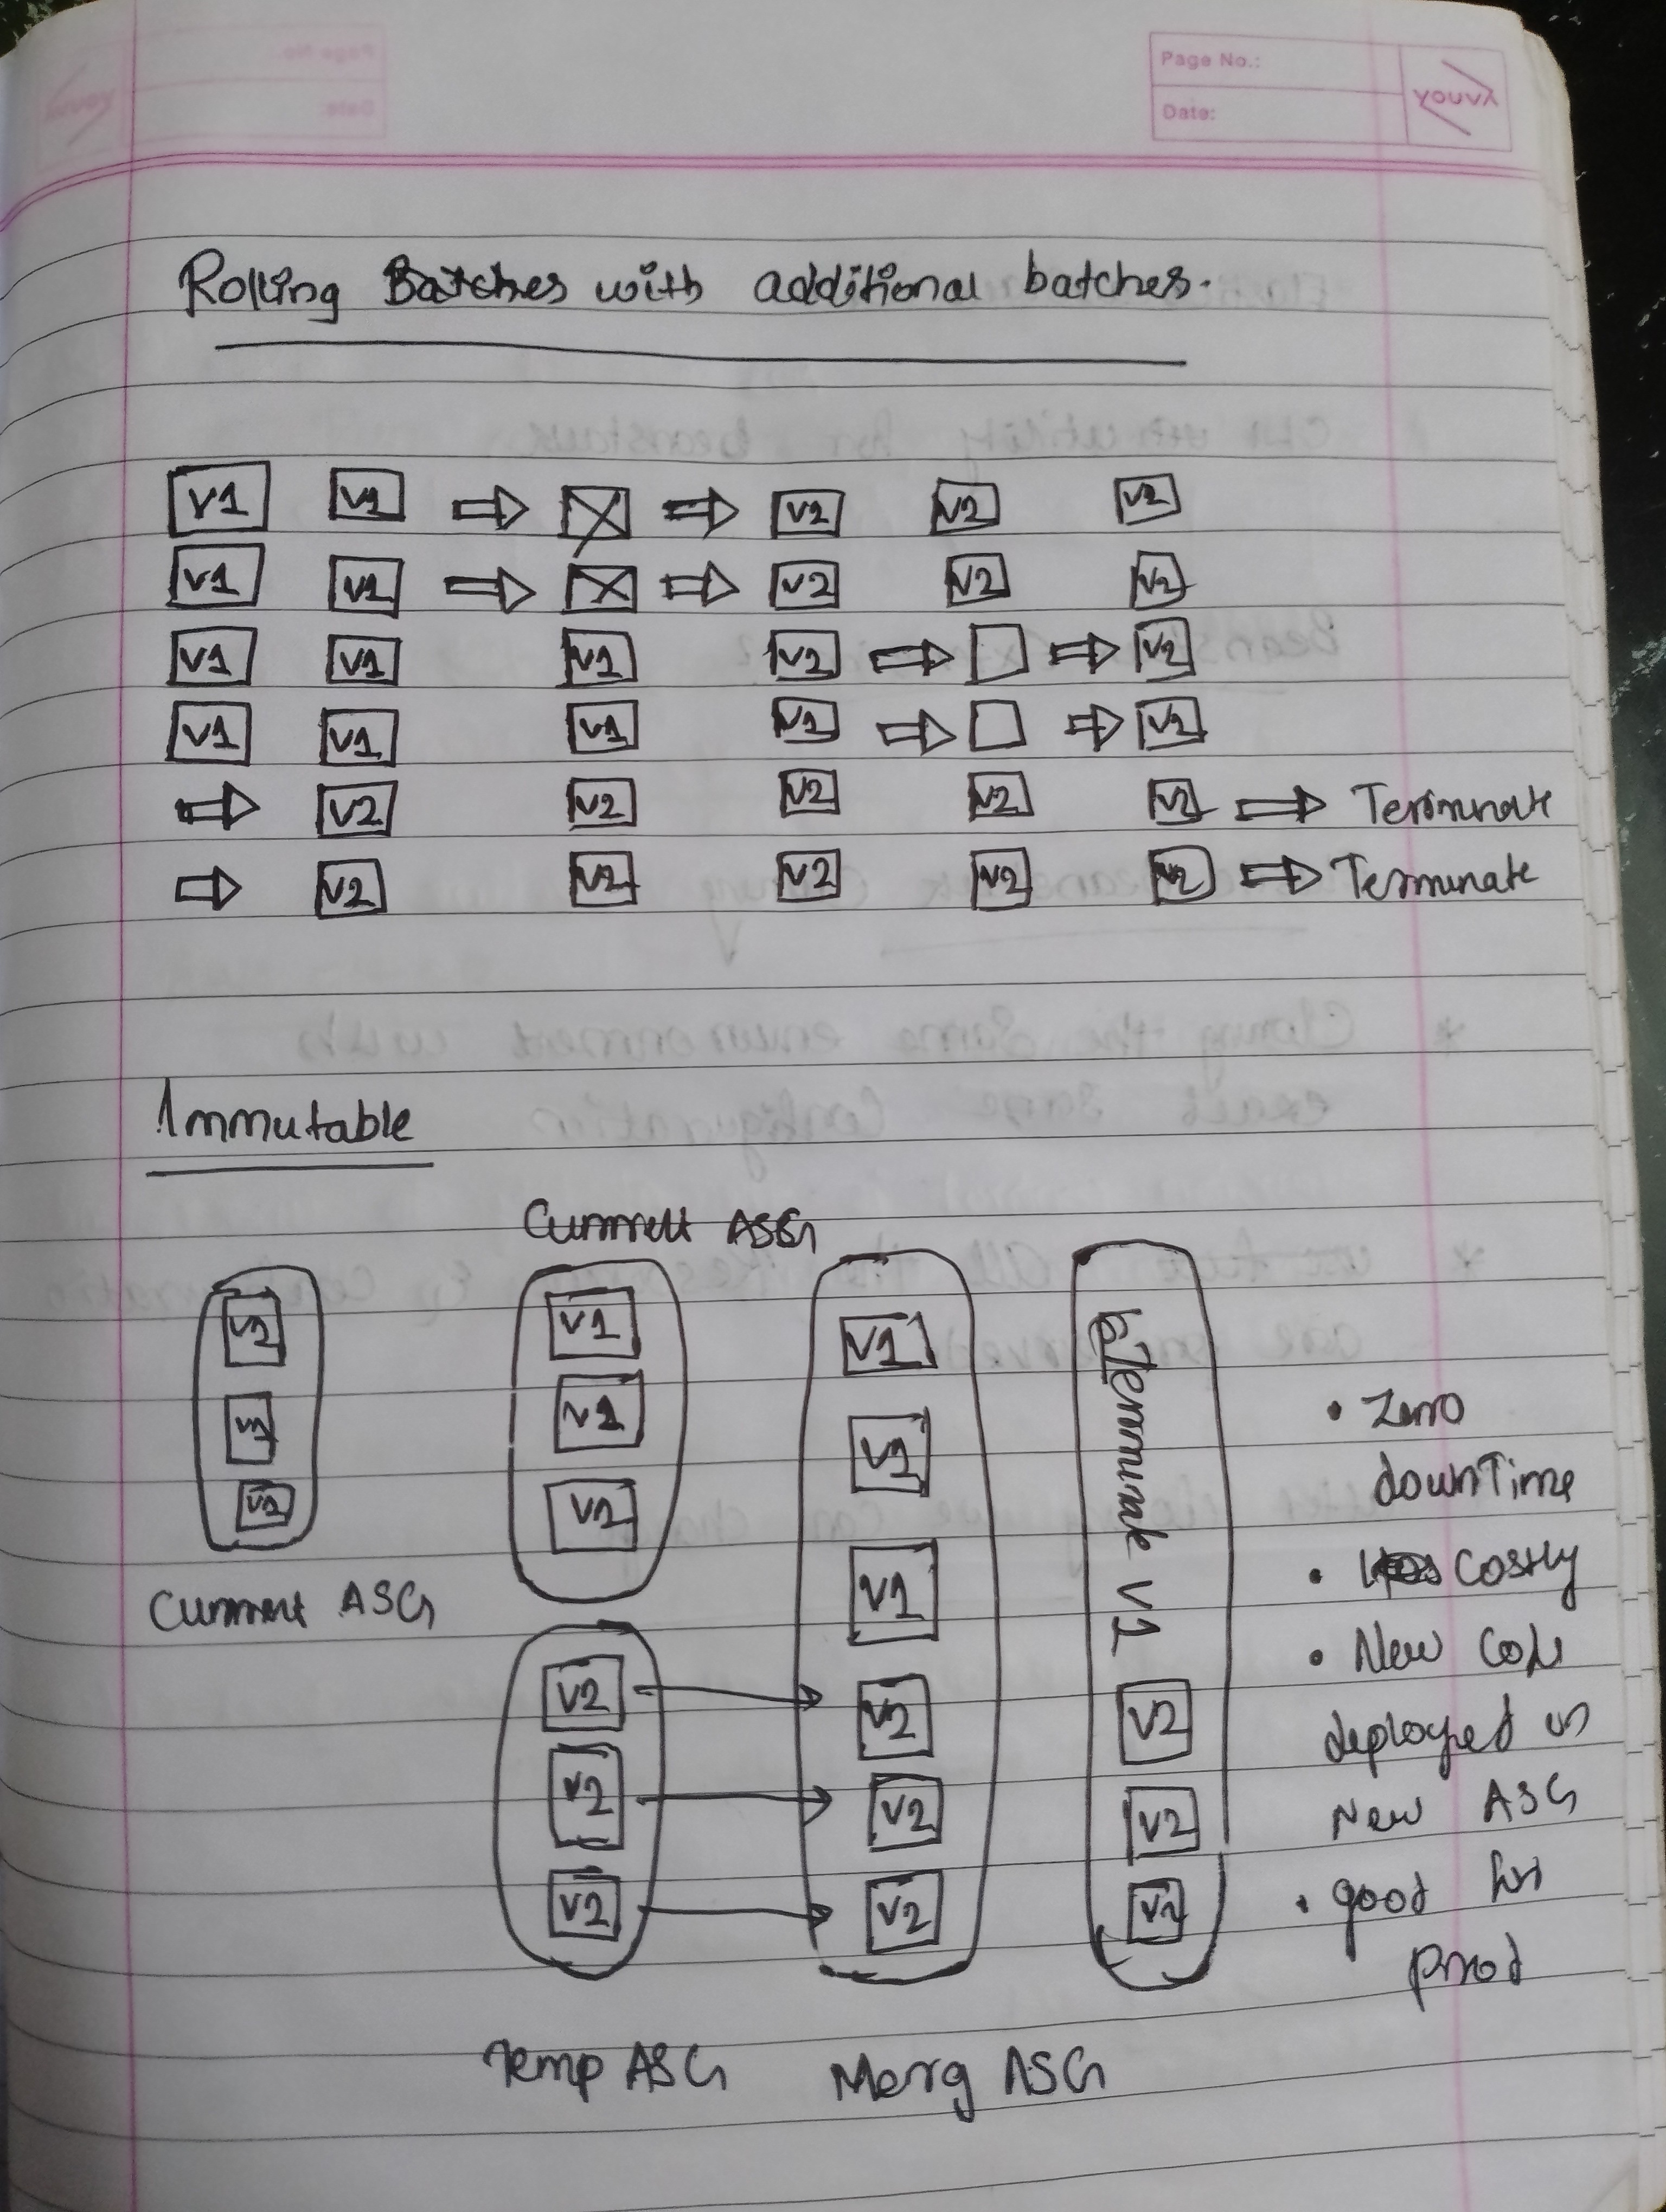 Page No.:
Date:
Youva
Rolling Batches with additional batches.
V1 V1 ⇒ ⇒ V2 V2 V2
V1 V1 ⇒ ⇒ V2 V2 V2
V1 V1 V1 V2 ⇒ ⇒ V2
V1 V1 V1 V1 ⇒ ⇒ V2
⇒ V2 V2 V2 V2 V2 ⇒ Terminate
⇒ V2 V2 V2 V2 V2 ⇒ Terminate
Immutable
Current ASG
V1
V1
V1
Current ASG
V1
V1
V1
V2
V2
V2
Temp ASG
V1
V1
V1
V2
V2
V2
Merg ASG
Terminate V1
V2
V2
V2
• Zero
downTime
• Costly
• New Code
deployed in
New ASG
• good for
prod